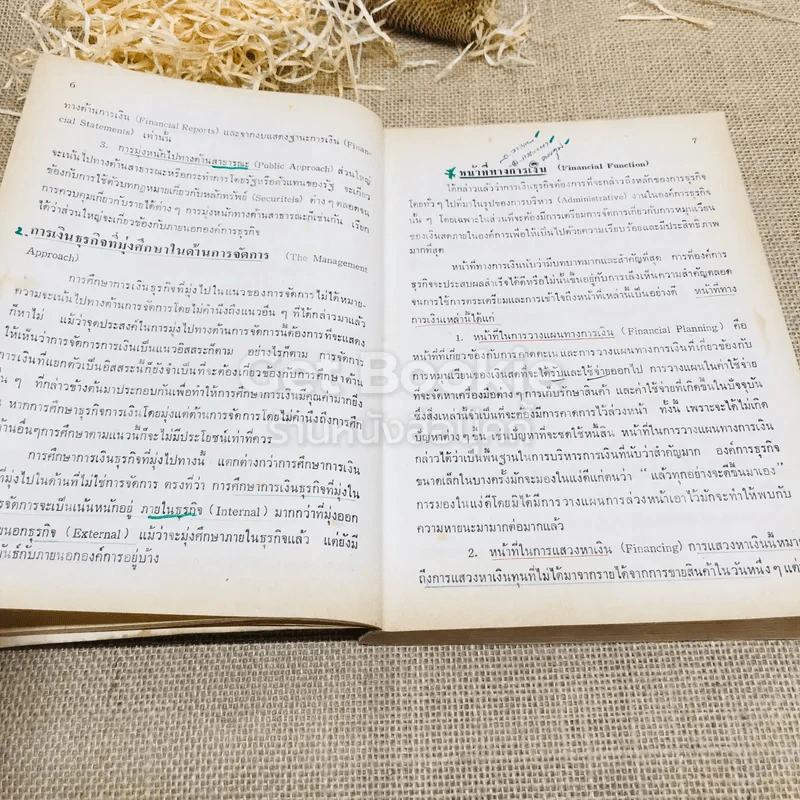 6
ทางด้านการเงิน (Financial Reports) และจากงบแสดงฐานะการเงิน (Finan-
cial Statements) เท่านั้น
3. การมุ่งหนักไปทางด้านสาธารณะ (Public Approach) ส่วนใหญ่
จะเน้นไปทางด้านสาธารณะหรือกระทำการโดยรัฐหรือตัวแทนของรัฐ จะเกี่ยว
ข้องกับการใช้ตัวบทกฎหมายเกี่ยวกับหลักทรัพย์ (Securiteis) ต่าง ๆ ตลอดจน
การควบคุมเกี่ยวกับรายได้ต่าง ๆ การมุ่งหนักทางด้านสาธารณะก็เช่นกัน เรียก
ได้ว่าส่วนใหญ่จะเกี่ยวข้องกับภายนอกองค์การธุรกิจ
2. การเงินธุรกิจที่มุ่งศึกษาในด้านการจัดการ (The Management
Approach)
การศึกษาการเงินธุรกิจที่มุ่งไปในแนวของการจัดการ ไม่ได้หมาย-
ความจะเน้นไปทางด้านการจัดการโดยไม่คำนึงถึงแนวอื่น ๆ ที่ได้กล่าวมาแล้ว
ก็หาไม่ แม้ว่าจุดประสงค์ในการมุ่งไปทางด้านการจัดการนี้ต้องการที่จะแสดง
ให้เห็นว่าการจัดการการเงินเป็นแนวอิสสระก็ตาม อย่างไรก็ตาม การจัดการ
การเงินที่แยกตัวเป็นอิสสระนั้นก็ยังจำเป็นที่จะต้องเกี่ยวข้องกับการศึกษาด้าน
อื่น ๆ ที่กล่าวข้างต้นมาประกอบกันเพื่อทำให้การศึกษาการเงินมีคุณค่ามากยิ่ง
หากการศึกษาธุรกิจการเงินโดยมุ่งแต่ด้านการจัดการโดยไม่คำนึงถึงการศึก
ด้านอื่นๆการศึกษาตามแนวนั้นก็จะไม่มีประโยชน์เท่าที่ควร
การศึกษาการเงินธุรกิจที่มุ่งไปทางนี้ แตกต่างกว่าการศึกษาการเงิน
ที่มุ่งไปในด้านที่ไม่ใช่การจัดการ ตรงที่ว่า การศึกษาการเงินธุรกิจที่มุ่งใน
การจัดการจะเป็นเน้นหนักอยู่ ภายในธุรกิจ (Internal) มากกว่าที่มุ่งออก
ยนอกธุรกิจ (External) แม้ว่าจะมุ่งศึกษาภายในธุรกิจแล้ว แต่ยังมี
พันธ์กับภายนอกองค์การอยู่บ้าง
7
หน้าที่ทางการเงิน (Financial Function)
ได้กล่าวแล้วว่าการเงินธุรกิจต้องการที่จะกล่าวถึงหลักของการธุรกิจ
โดยทั่ว ๆ ไปที่มาในรูปของการบริหาร (Administrative) งานในองค์การธุรกิจ
นั้น ๆ โดยเฉพาะในส่วนที่จะต้องมีการเตรียมการจัดการเกี่ยวกับการหมุนเวียน
ของเงินสดภายในองค์การเพื่อให้เป็นไปด้วยความเรียบร้อยและมีประสิทธิภาพ
มากที่สุด
หน้าที่ทางการเงินนับว่ามีบทบาทมากและสำคัญที่สุด การที่องค์การ
ธุรกิจจะประสบผลสำเร็จได้ดีหรือไม่นั้นขึ้นอยู่กับการเล็งเห็นความสำคัญตลอด
จนการใช้การตระเตรียมและการเข้าใจถึงหน้าที่เหล่านั้นเป็นอย่างดี หน้าที่ทาง
การเงินเหล่านี้ได้แก่
1. หน้าที่ในการวางแผนทางการเงิน (Financial Planning) คือ
หน้าที่ที่เกี่ยวข้องกับการคาดคะเน และการวางแผนทางการเงินที่เกี่ยวข้องกับ
การหมุนเวียนของเงินสดที่จะได้รับและใช้จ่ายออกไป การวางแผนในค่าใช้จ่าย
ที่จะจัดหาเครื่องมือต่าง ๆ การเก็บรักษาสินค้า และค่าใช้จ่ายที่เกิดขึ้นในปัจจุบัน
ซึ่งสิ่งเหล่านี้จำเป็นที่จะต้องมีการคาดการไว้ล่วงหน้า ทั้งนี้ เพราะจะได้ไม่เกิด
ปัญหาต่างๆ ขึ้น เช่นปัญหาที่จะชดใช้หนี้สิน หน้าที่ในการวางแผนทางการเงิน
กล่าวได้ว่าเป็นพื้นฐานในการบริหารการเงินที่นับว่าสำคัญมาก องค์การธุรกิจ
ขนาดเล็กในบางครั้งมักจะมองในแง่ดีแก่ตนว่า " แล้วทุกอย่างจะดีขึ้นมาเอง "
การมองในแง่ดีโดยมิได้มีการวางแผนการล่วงหน้าเอาไว้มักจะทำให้พบกับ
ความหายนะมามากต่อมากแล้ว
2. หน้าที่ในการแสวงหาเงิน (Financing) การแสวงหาเงินนี้หมาย
ถึงการแสวงหาเงินทุนที่ไม่ได้มาจากรายได้จากการขายสินค้าในวันหนึ่ง ๆ แต่
Get Bookie
ร้านหนังสือเก็ตบุ๊คกี้